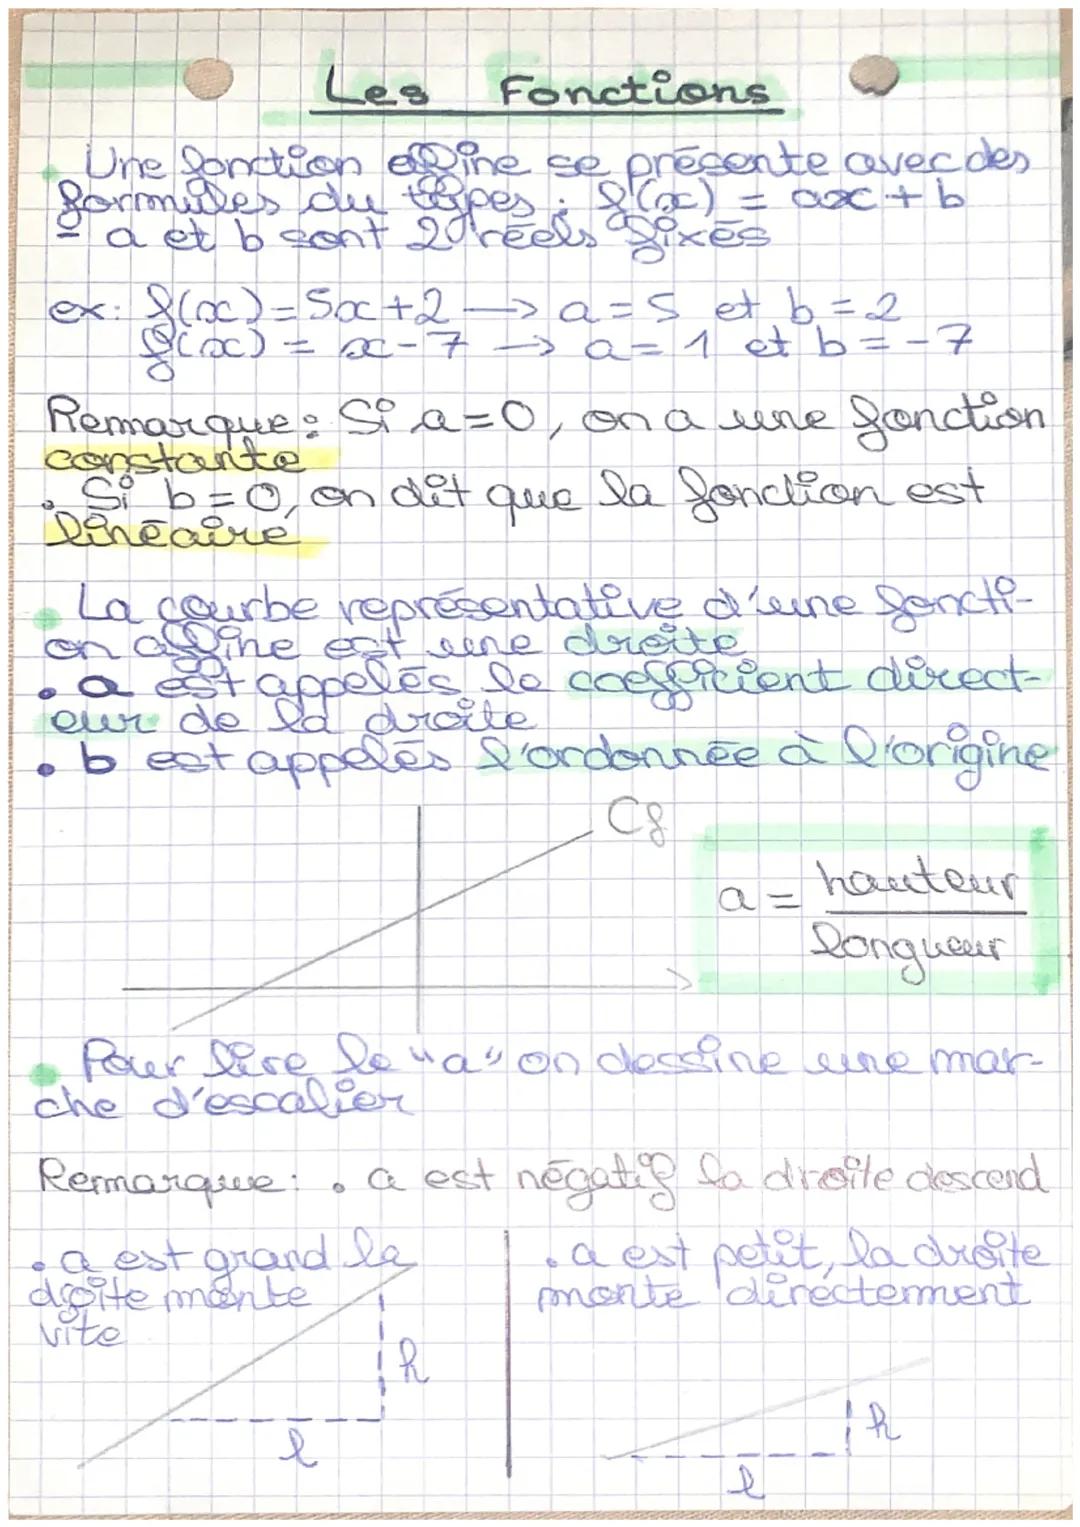 Les Fonctions
Une fonction affine se présente avec des
formules du types : f(x) = ax + b
- a et b sont 2 réels fixés
ex: f(x) = 5x + 2 → a = 5 et b = 2
g(x) = x - 7 → a = 1 et b = - 7
Remarque : Si a = 0, on a une fonction
constante
• Si b = 0, on dit que la fonction est
linéaire
La courbe représentative d'une foncti-
on affine est une droite
• a est appelés le coefficient direct-
eur de la droite
• b est appelés l'ordonnée à l'origine
Cf
a = hauteur
longueur
Pour lire le "a" on dessine une mar-
che d'escalier
Remarque : • a est négatif la droite descend
• a est grand la
droite monte
vite
h
l
• a est petit, la droite
monte directement
h
l